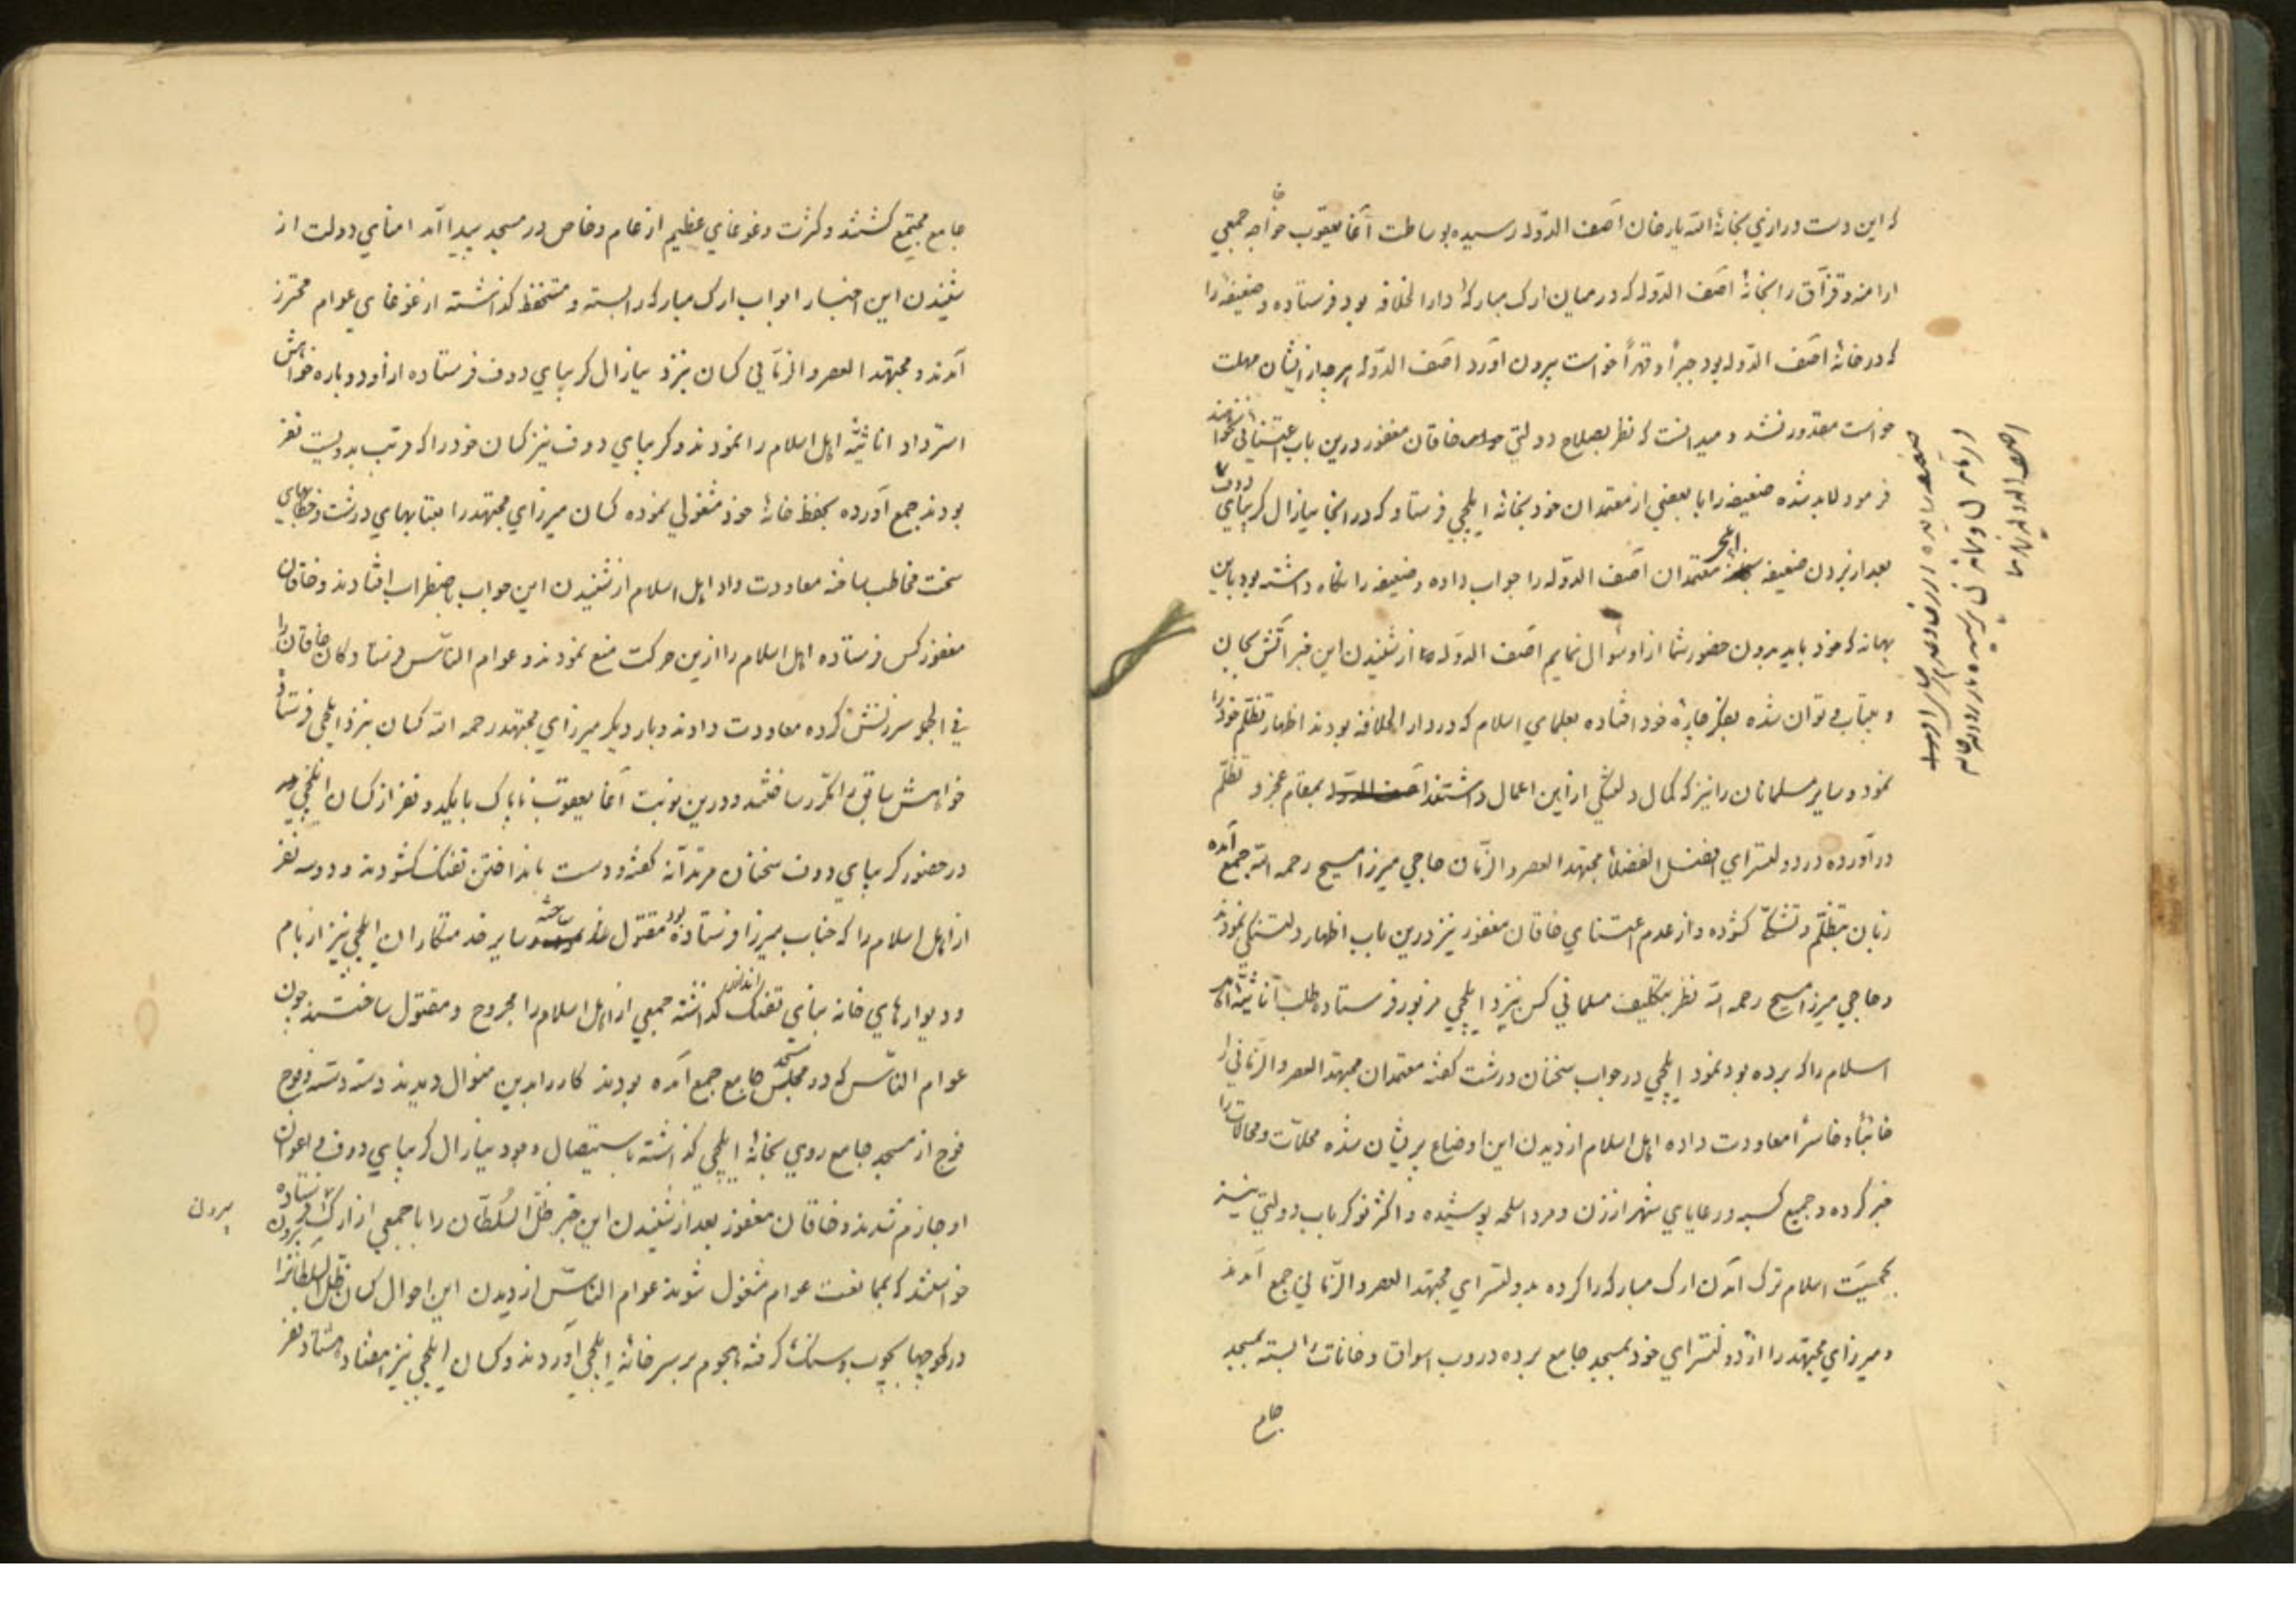 که این دست درازی بخانهٔ الله یار خان آصف الدوله رسیده بوساطت آقا یعقوب خواجه جمعی
ارامنه و قزاق را بخانهٔ آصف الدوله که در میان ارک مبارکهٔ دار الخلافه بود فرستاده و ضعیفه را
که در خانهٔ آصف الدوله بود جبراً و قهراً خواست بیرون آورد آصف الدوله هرچه از ایشان مهلت
خواست مقدور نشد و میدانست که نظر بصلاح دولتی خاقان مغفور درین باب اعتنائی نخواهند
فرمود لابد شده ضعیفه را با بعضی از معتمدان خود بخانهٔ ایلچی فرستاد که در آنجا نیازال کریبای دوف
بعد از بردن ضعیفه معتمدان آصف الدوله را جواب داده و ضعیفه را نگاه داشته بود باین
بهانه که خود باید بدون حضور شما از او سؤال نمایم آصف الدوله از شنیدن این خبر آتش بجان
و بیتاب و توان شده بفکر چارهٔ خود افتاده بعلمای اسلام که در دار الخلافه بودند اظهار تظلم خود را
نمود و سایر مسلمانان را نیز که کمال دلتنگی ازین اعمال داشتند آصف الدوله بمقام عجز و تظلم
در آورده در دولتسرای افضل الفضلاء مجتهد العصر و الزمان حاجی میرزا مسیح رحمه الله جمع آمده
زبان بتظلم و تشکی گشوده و از عدم اعتنای خاقان مغفور نیز درین باب اظهار دلتنگی نمودند
و حاجی میرزا مسیح رحمه الله نظر بتکلیف مسلمانی کس بنزد ایلچی مزبور فرستاده طلب اناثیهٔ اهل
اسلام را که برده بود نمود ایلچی در جواب سخنان درشت گفته معتمدان مجتهد العصر و الزمانی را
خائباً و خاسراً معاودت داده اهل اسلام از دیدن این اوضاع پریشان شده محلات و محالات را
خبر کرده و جمیع کسبه و رعایای شهر از زن و مرد اسلحه پوشیده و اکثر نوکر باب دولتی نیز
بحمیت اسلام ترک آمدن ارک مبارکه را کرده بدولتسرای مجتهد العصر و الزمانی جمع آمدند
و میرزای مجتهد را از دولتسرای خود بمسجد جامع برده دروب اسواق و خانات را بسته بمسجد
جامع
جامع مجتمع گشتند و کثرت و غوغای عظیم از عام و خاص در مسجد پیدا آمد امنای دولت از
شنیدن این اخبار ابواب ارک مبارکه را بسته و مستحفظ گذاشته از غوغای عوام محترز
آمدند و مجتهد العصر و الزمانی کسان بنزد نیازال کریبای دوف فرستاده از او دوباره خواهش
استرداد اناثیهٔ اهل اسلام را نمودند و کریبای دوف نیز کسان خود را که قریب بدویست نفر
بودند جمع آورده بحفظ خانهٔ خود مشغولی نموده کسان میرزای مجتهد را بعتابهای درشت و خطابهای
سخت مخاطب ساخته معاودت داد اهل اسلام از شنیدن این جواب باضطراب افتادند و خاقان
مغفور کس فرستاده اهل اسلام را ازین حرکت منع نمودند و عوام الناس فرستادگان خاقان را
فی الجمله سرزنش کرده معاودت دادند و بار دیگر میرزای مجتهد رحمه الله کسان بنزد ایلچی فرستاده
خواهش سابق را مکرر ساختند و درین نوبت آقا یعقوب ناپاک با یکدو نفر از کسان ایلچی
در حضور کریبای دوف سخنان مرتدانه گفته و دست بانداختن تفنگ گشودند و دو سه نفر
از اهل اسلام را که جناب میرزا فرستاده بود مقتول ساخته و سایر خدمتکاران ایلچی نیز از بام
و دیوارهای خانه بنای تفنگ انداختن گذاشته جمعی از اهل اسلام را مجروح و مقتول ساختند چون
عوام الناس که در مسجد جامع جمع آمده بودند کار را بدین منوال دیدند دسته دسته و فوج
فوج از مسجد جامع روی بخانهٔ ایلچی گذاشته باستیصال وجود نیازال کریبای دوف و اعوان
او جازم شدند و خاقان مغفور بعد از شنیدن این خبر ظل السلطان را با جمعی از ارک فرستاده بیرون
بیرون
خواستند که بممانعت عوام مشغول شوند عوام الناس از دیدن این احوال کسان ظل السلطانرا
در کوچها بچوب و سنگ گرفته هجوم بر سر خانهٔ ایلچی آوردند و کسان ایلچی نیز هفتاد هشتاد نفر